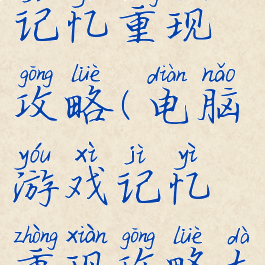 记忆重现
gōng lüè diàn nǎo
攻略(电脑
yóu xì jì yì
游戏记忆
zhòng xiàn gōng lüè dà
重现攻略大